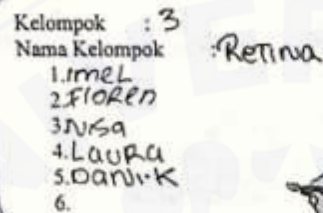 Kelompok : 3
Nama Kelompok : Retina
1. Imel
2. Floren
3. Nisa
4. Laura
5. Danik
6.